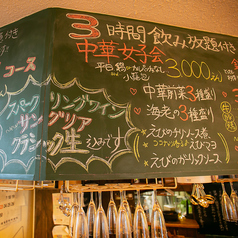 3時間飲み放題付き
中華女子会
3,000
コース
スパークリングワイン
サングリア
クラシック生
込みです！
♡中華前菜3種盛り
♡海老の3種盛り
・えびのチリソース煮
・えびマヨ
・えびのガーリックソース